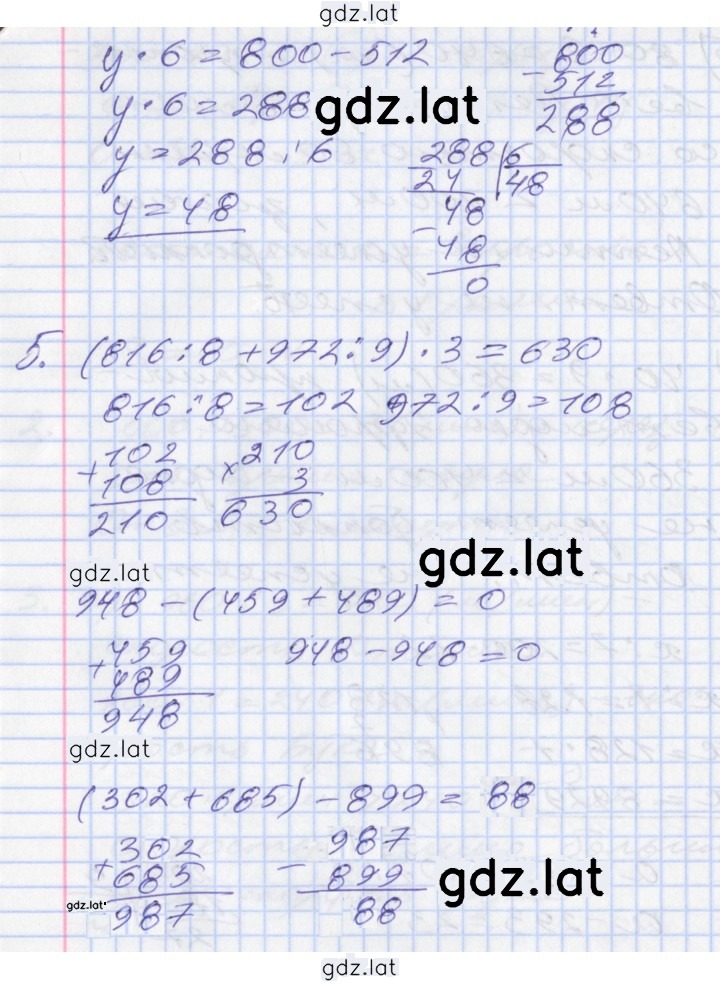 gdz.lat
y · 6 = 800 - 512
800
- 512
288
y · 6 = 288
gdz.lat
y = 288 : 6
288 | 6
24 | 48
48
- 48
0
y = 48
5. (816 : 8 + 972 : 9) · 3 = 630
816 : 8 = 102 972 : 9 = 108
+ 102
108
210
× 210
3
630
gdz.lat
gdz.lat
948 - (459 + 489) = 0
+ 459
489
948
948 - 948 = 0
gdz.lat
(302 + 685) - 899 = 88
+ 302
685
987
- 987
899
88
gdz.lat
gdz.lat
gdz.lat